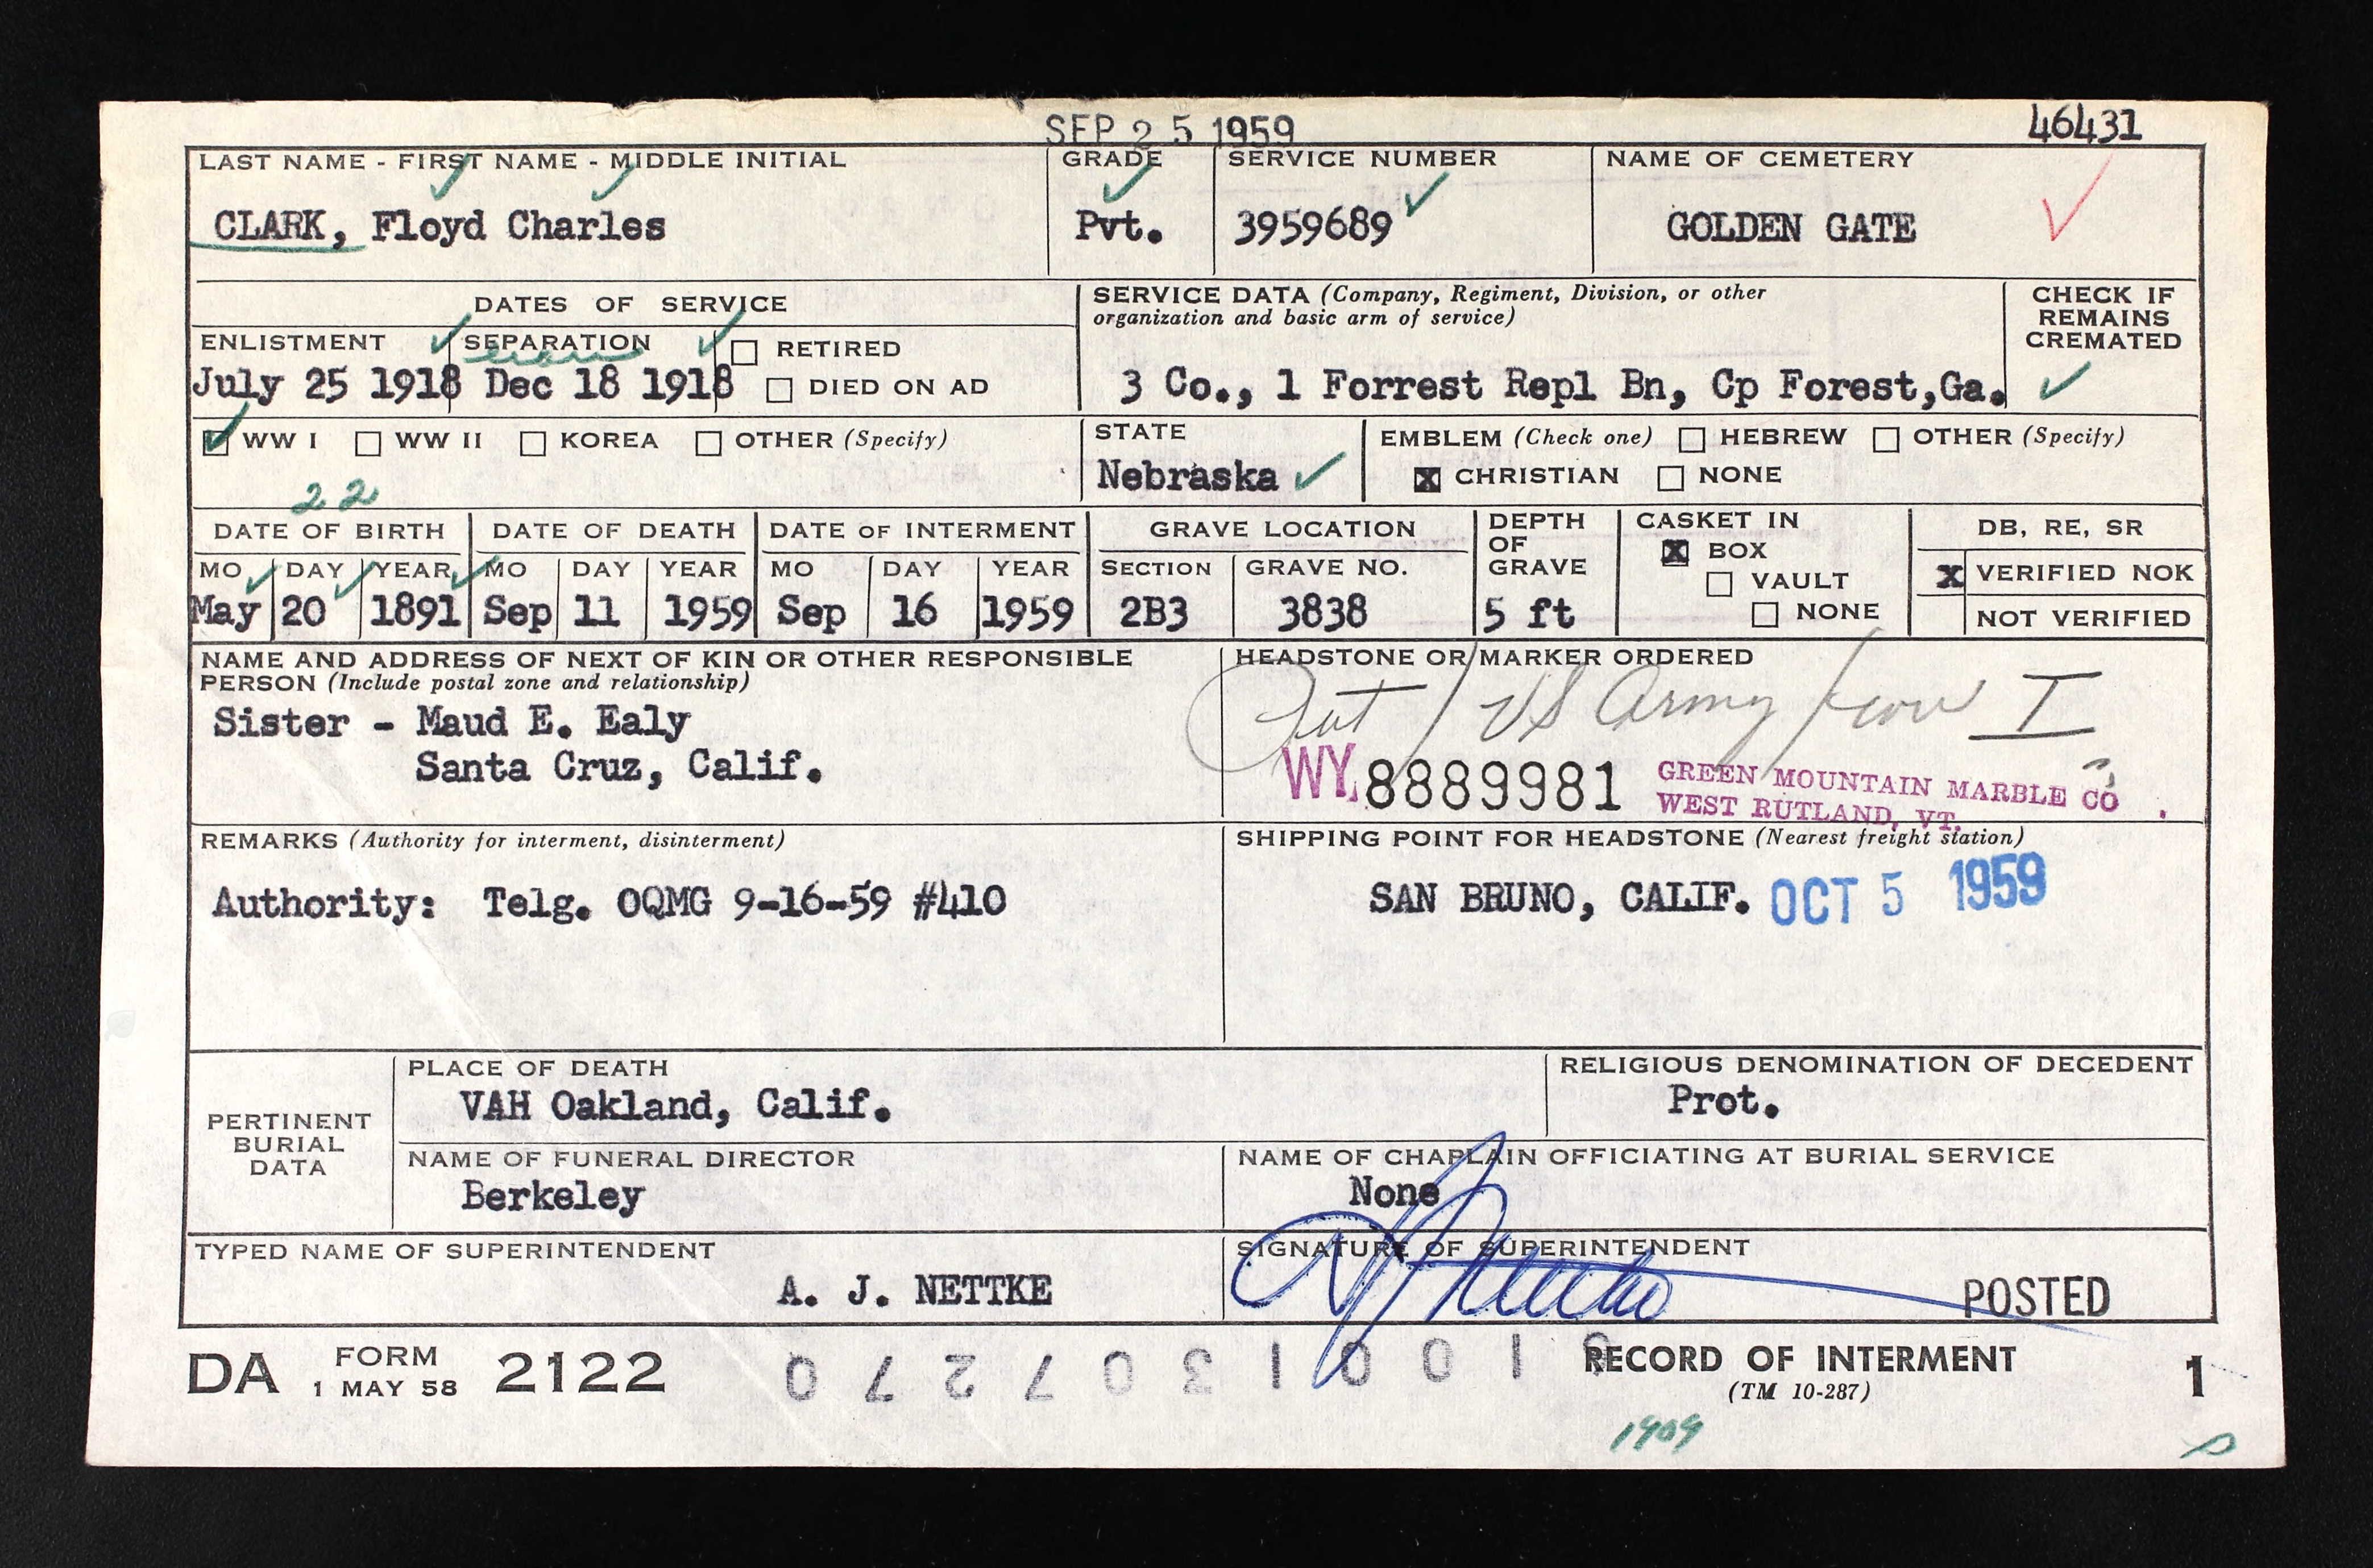 SEP 25 1959
46431
LAST NAME - FIRST NAME - MIDDLE INITIAL
CLARK, Floyd Charles
GRADE
Pvt.
SERVICE NUMBER
3959689
NAME OF CEMETERY
GOLDEN GATE
DATES OF SERVICE
ENLISTMENT
July 25 1918
SEPARATION
Dec 18 1918
RETIRED
DIED ON AD
SERVICE DATA (Company, Regiment, Division, or other
organization and basic arm of service)
3 Co., 1 Forrest Repl Bn, Cp Forest,Ga.
CHECK IF
REMAINS
CREMATED
WW I WW II KOREA OTHER (Specify)
STATE
Nebraska
EMBLEM (Check one) HEBREW OTHER (Specify)
X CHRISTIAN NONE
22
DATE OF BIRTH
MO DAY YEAR
May 20 1891
DATE OF DEATH
MO DAY YEAR
Sep 11 1959
DATE OF INTERMENT
MO DAY YEAR
Sep 16 1959
GRAVE LOCATION
SECTION GRAVE NO.
2B3 3838
DEPTH
OF
GRAVE
5 ft
CASKET IN
X BOX
VAULT
NONE
DB, RE, SR
X VERIFIED NOK
NOT VERIFIED
NAME AND ADDRESS OF NEXT OF KIN OR OTHER RESPONSIBLE
PERSON (Include postal zone and relationship)
Sister - Maud E. Ealy
Santa Cruz, Calif.
HEADSTONE OR MARKER ORDERED
Pvt / US Army / WW I
WY 8889981
GREEN MOUNTAIN MARBLE CO.
WEST RUTLAND, VT.
REMARKS (Authority for interment, disinterment)
Authority: Telg. OQMG 9-16-59 #410
SHIPPING POINT FOR HEADSTONE (Nearest freight station)
SAN BRUNO, CALIF. OCT 5 1959
PERTINENT
BURIAL
DATA
PLACE OF DEATH
VAH Oakland, Calif.
RELIGIOUS DENOMINATION OF DECEDENT
Prot.
NAME OF FUNERAL DIRECTOR
Berkeley
NAME OF CHAPLAIN OFFICIATING AT BURIAL SERVICE
None
TYPED NAME OF SUPERINTENDENT
A. J. NETTKE
SIGNATURE OF SUPERINTENDENT
A J Nettke
POSTED
DA FORM 2122
1 MAY 58
RECORD OF INTERMENT
(TM 10-287)
1
1909